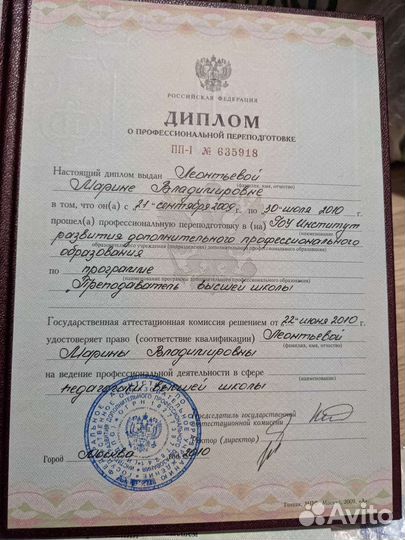 РОССИЙСКАЯ ФЕДЕРАЦИЯ
ДИПЛОМ
О ПРОФЕССИОНАЛЬНОЙ ПЕРЕПОДГОТОВКЕ
ПП-I № 635918
Настоящий диплом выдан Леонтьевой
(фамилия, имя, отчество)
Марине Владимировне
в том, что он(а) с „21“ сентября 2009 г. по „30“ июля 2010 г.
прошел(а) профессиональную переподготовку в (на) ГОУ Институт
(наименование)
развития дополнительного профессионального
образовательного учреждения (подразделения) дополнительного профессионального образования)
образования
по программе
(наименование программы дополнительного профессионального образования)
Преподаватель высшей школы
Государственная аттестационная комиссия решением от „22“ июня 2010 г.
удостоверяет право (соответствие квалификации) Леонтьевой
(фамилия, имя, отчество)
Марины Владимировны
на ведение профессиональной деятельности в сфере
(наименование)
педагогики высшей школы
Председатель государственной
аттестационной комиссии
Ректор (директор)
Город Москва 2010
Гознак, МПФ, Москва, 2009,
Avito